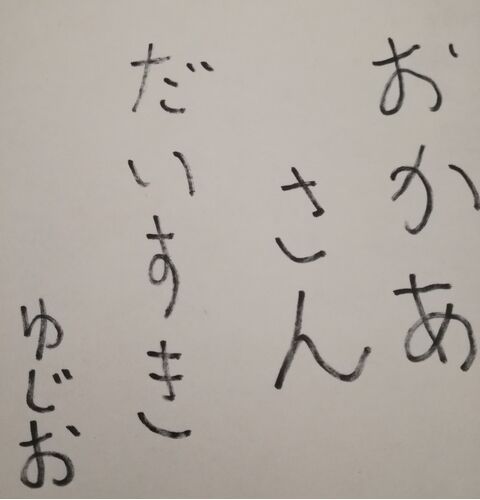 おかあ
さん
だいすき
ゆじお